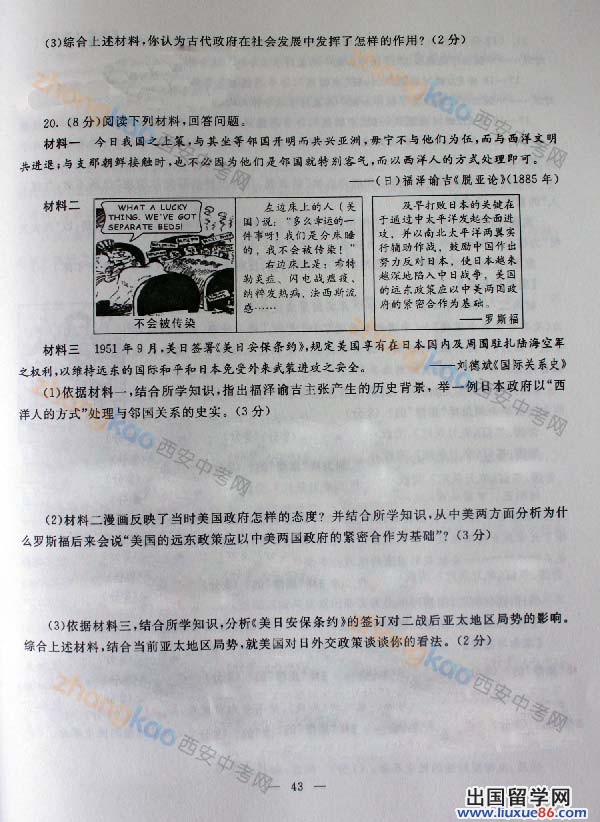 (3)综合上述材料,你认为古代政府在社会发展中发挥了怎样的作用?(2分)
20.(8分)阅读下列材料,回答问题。
材料一 今日我国之上策,与其坐等邻国开明而共兴亚洲,毋宁不与他们为伍,而与西洋文明
共进退;与支那朝鲜接触时,也不必因为他们是邻国就特别客气,而以西洋人的方式处理即可。
——(日)福泽谕吉《脱亚论》(1885年)
材料二
WHAT A LUCKY
THING. WE'VE GOT
SEPARATE BEDS!
不会被传染
左边床上的人(美
国)说:“多么幸运的一
件事呀!我们是分床睡
的,我不会被传染!”
右边床上是:希特
勒炎症、闪电战瘟疫、
纳粹发热病、法西斯流
感……
及早打败日本的关键在
于通过中太平洋发起全面进
攻,并以南北太平洋两翼实
行辅助作战,鼓励中国作出
努力反对日本,使日本越来
越深地陷入中日战争,美国
的远东政策应以中美两国政
府的紧密合作为基础。
——罗斯福
材料三 1951年9月,美日签署《美日安保条约》,规定美国享有在日本国内及周围驻扎陆海空军
之权利,以维持远东的国际和平和日本免受外来武装进攻之安全。 ——刘德斌《国际关系史》
(1)依据材料一,结合所学知识,指出福泽谕吉主张产生的历史背景,举一例日本政府以“西
洋人的方式”处理与邻国关系的史实。(3分)
(2)材料二漫画反映了当时美国政府怎样的态度?并结合所学知识,从中美两方面分析为什
么罗斯福后来会说“美国的远东政策应以中美两国政府的紧密合作为基础”?(3分)
(3)依据材料三,结合所学知识,分析《美日安保条约》的签订对二战后亚太地区局势的影响。
综合上述材料,结合当前亚太地区局势,就美国对日外交政策谈谈你的看法。(2分)
— 43 —
zhongkao西安中考网
zhongkao西安中考网
zhongkao西安中考网
zhongkao西安中考网
zhongkao西安中考网
zhongkao西安中考网
出国留学网
www.liuxue86.com